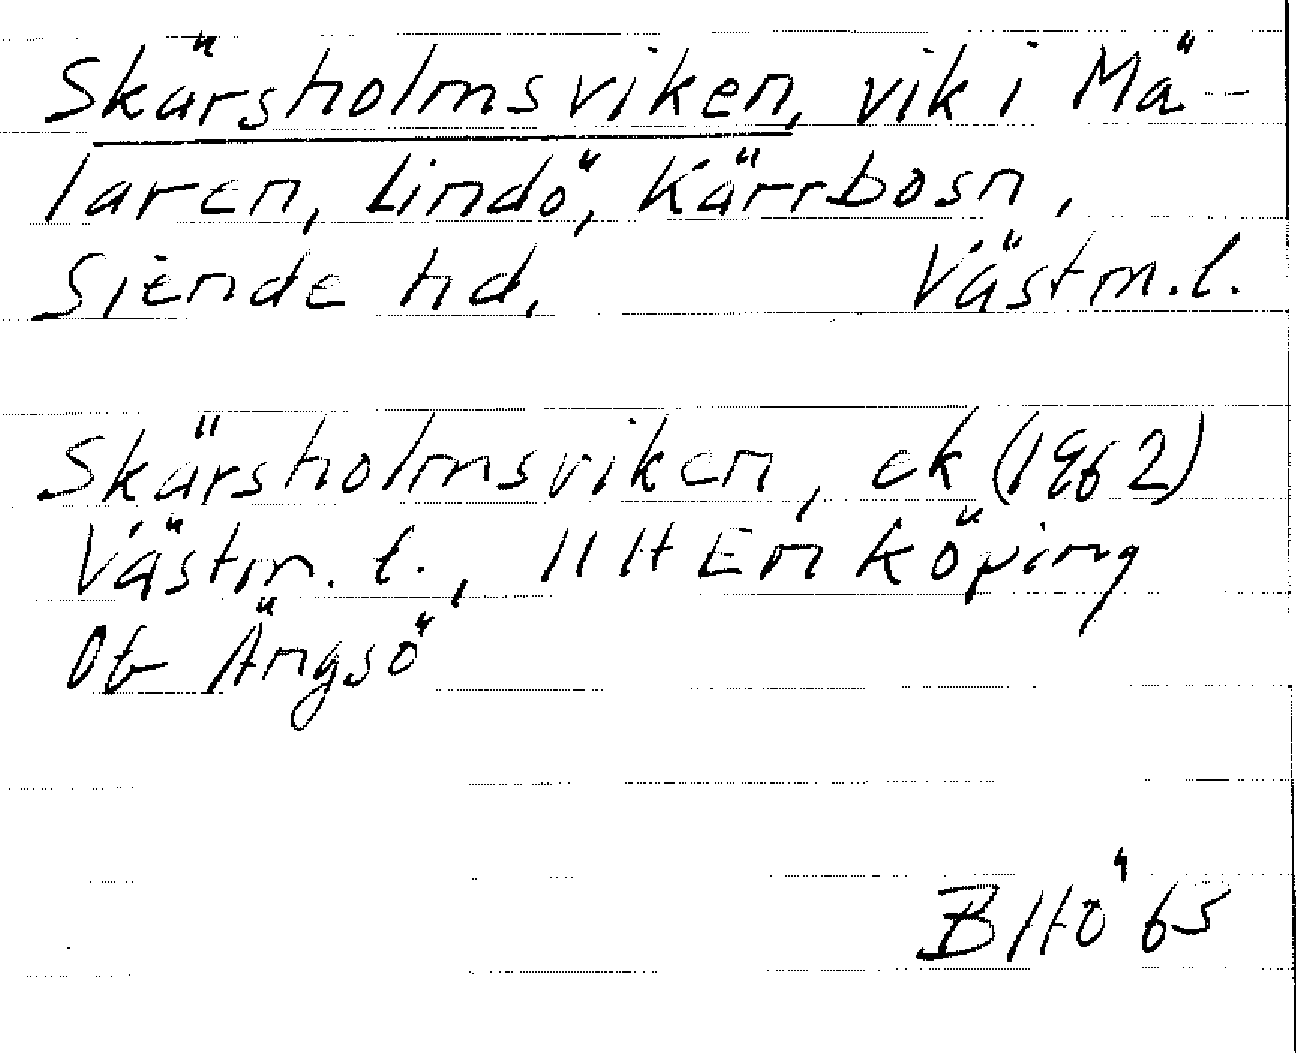 Skärsholmsviken, vik i Mä-
laren, Lindö, Kärrbosn,
Siende hd. Västm.l.
Skärsholmsviken, ek (1962)
Västm. l., 11 H Enköping
Ob Ängsö
BHö 63